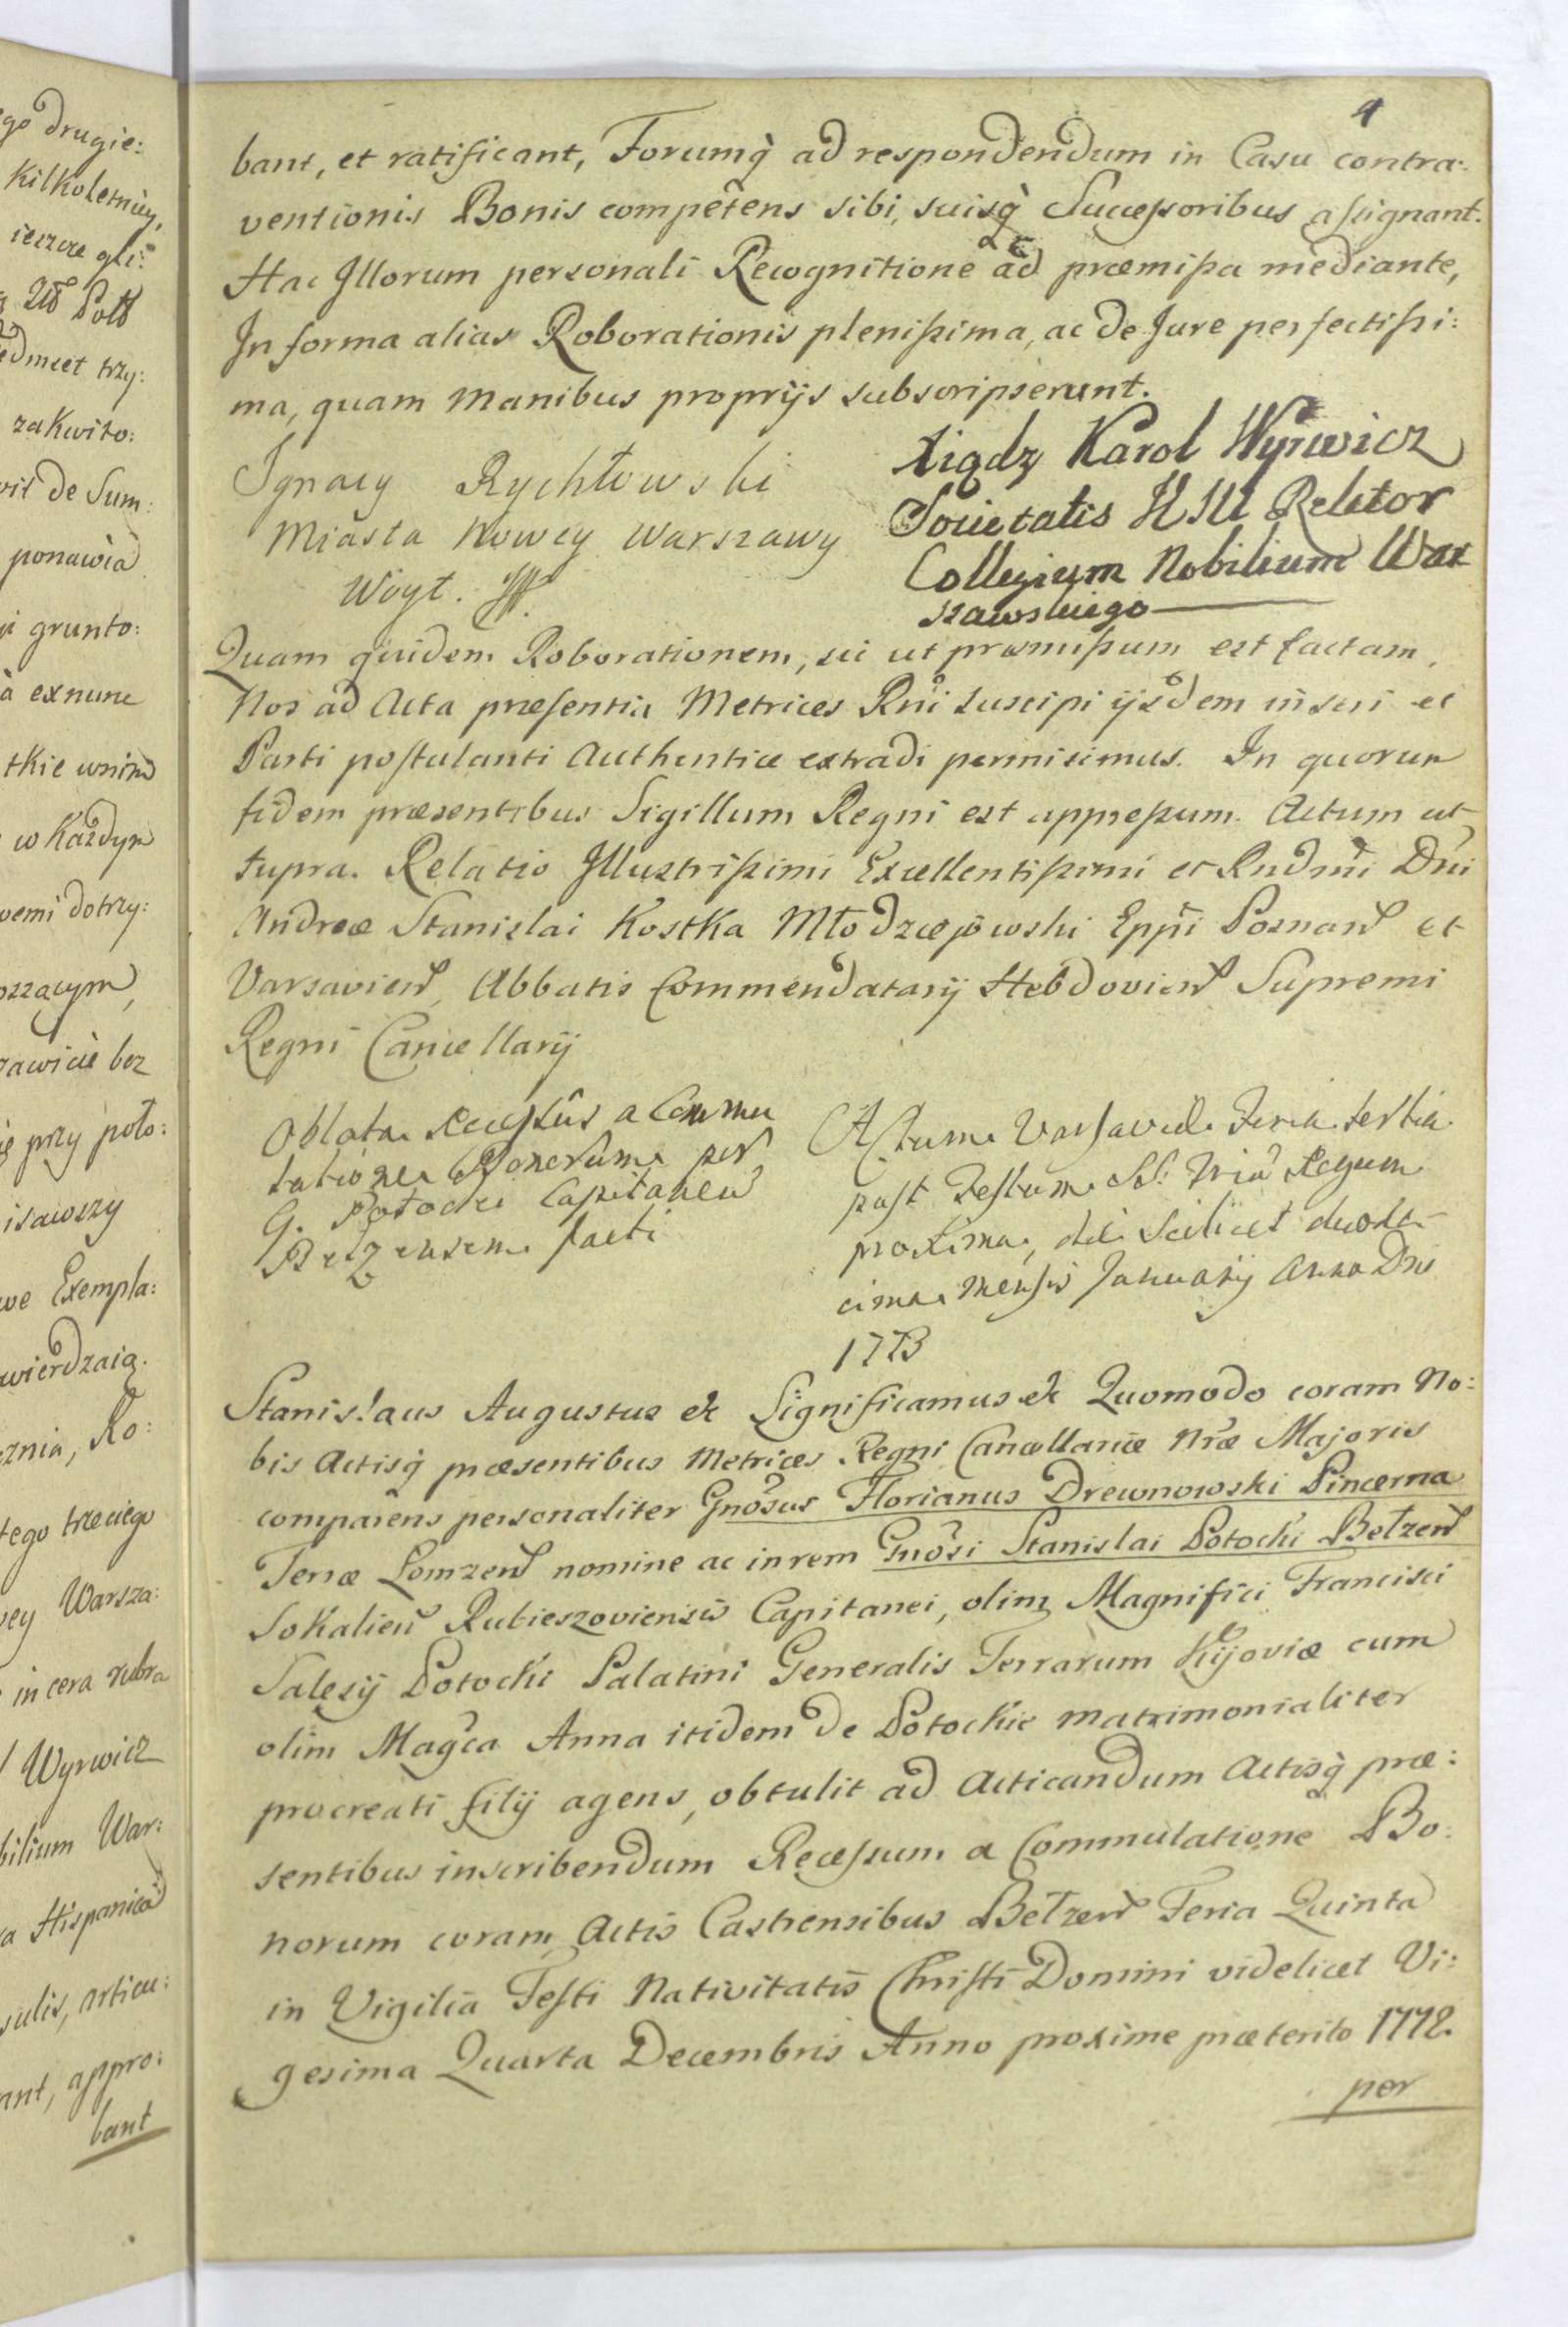 4
bant, et ratificant, Forumq̀ ad respondendum in Casu contra:
ventionis Bonis competens sibi, suisq̀ Successoribus assignant.
Hac Jllorum personali Recognitione ac ad præmissa mediante,
In forma alias Roborationis plenissima, ac de Jure perfectissi:
ma, quam Manibus proprijs subscripserunt.
Jgnacy Rychłowski
Miasta Nowey Warszawy
Woyt.
Xiądz Karol Wyrwicz
Societatis Rektor
Collegium Nobilium War
szawskiego
Quam quidem Roborationem, sic ut præmissum est factam,
Nos ad Acta præsentia Metrices Rni suscipi ijsdem inseri et
Parti postulanti Authentice extradi permisimus. In quorum
fidem præsentibus Sigillum Regni est appressum. Actum ut
supra. Relatio Jllustrissimi Excellentissimi et Rndmi Dni
Andreæ Stanislai Kostka Młodzieiowski Eppi Posnan et
Varsavien, Abbatis Commendatarij Hebdovien Supremi
Regni Cancellarij
Oblata Recessus a Commu
tatione Bonorum per
G. Potocki Capitaneu
Bełzensem facti
Actum Varsaviæ Feria tertia
post Festum SS. Triu Regum
proxima, die scilicet duode
cima Mensis January Anno Dni
1773
Stanislaus Augustus &c Significamus &c Quomodo coram No:
bis Actisq̀ præsentibus Metrices Regni Cancellariæ Nræ Majoris
comparens personaliter Gnosus Florianus Drewnowski Pincerna
Terræ Lomzen nomine ac in rem Gnosi Stanislai Potocki Bełzen
Sokalien Rubieszoviensis Capitanei, olim Magnifici Francisci
Salesij Potocki Palatini Generalis Terrarum Kijoviæ cum
olim Magca Anna itidem de Potockie matrimonialiter
procreati filij agens, obtulit ad Acticandum Actisq̀ præ:
sentibus inscribendum Recessum a Commutatione Bo:
norum coram Actis Castrensibus Bełzen Feria Quinta
in Vigilia Festi Nativitatis Christi Domini videlicet Vi:
gesima Quarta Decembris Anno proxime præterito 1772.
per